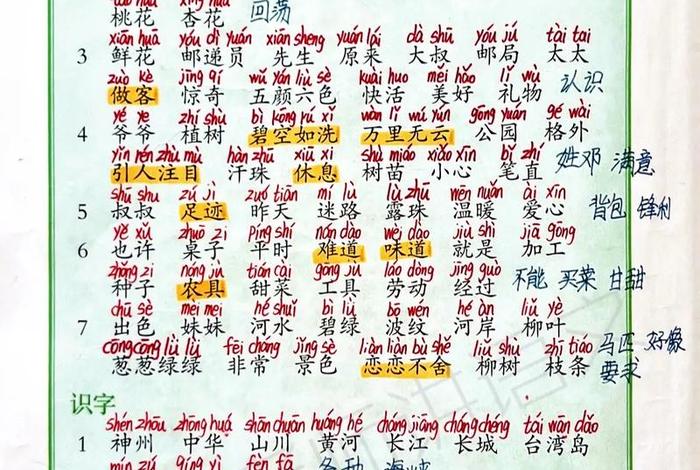 桃花 杏花 回荡
xiān huā yóu dì yuán xiān sheng yuán lái dà shū yóu jú tài tai
3 鲜花 邮递员 先生 原来 大叔 邮局 太太
zuò kè jīng qí wǔ yán liù sè kuài huo měi hǎo lǐ wù
做客 惊奇 五颜六色 快活 美好 礼物 认识
yé ye zhí shù bì kōng rú xǐ wàn lǐ wú yún gōng yuán gé wài
4 爷爷 植树 碧空如洗 万里无云 公园 格外
yǐn rén zhù mù hàn zhū xiū xi shù miáo xiǎo xīn bǐ zhí
引人注目 汗珠 休息 树苗 小心 笔直 姓邓 满意
shū shu zú jì zuó tiān mí lù lù zhū wēn nuǎn ài xīn
5 叔叔 足迹 昨天 迷路 露珠 温暖 爱心 背包 锋利
yě xǔ zhuō zi píng shí nán dào wèi dào jiù shì jiā gōng
6 也许 桌子 平时 难道 味道 就是 加工
zhǒng zi nóng jù tián cài gōng jù láo dòng jīng guò
种子 农具 甜菜 工具 劳动 经过 不能 买菜 甘甜
chū sè mèi mei hé shuǐ bì lǜ bō wén hé àn liǔ yè
7 出色 妹妹 河水 碧绿 波纹 河岸 柳叶
cōng cōng lǜ lǜ fēi cháng jǐng sè liàn liàn bù shě liǔ shù zhī tiáo 马匹 好像
葱葱绿绿 非常 景色 恋恋不舍 柳树 枝条 要求
识字
shén zhōu zhōng huá shān chuān huáng hé cháng jiāng cháng chéng tái wān dǎo
1 神州 中华 山川 黄河 长江 长城 台湾岛
mín zú qíng yì fèn fā 各种 海峡